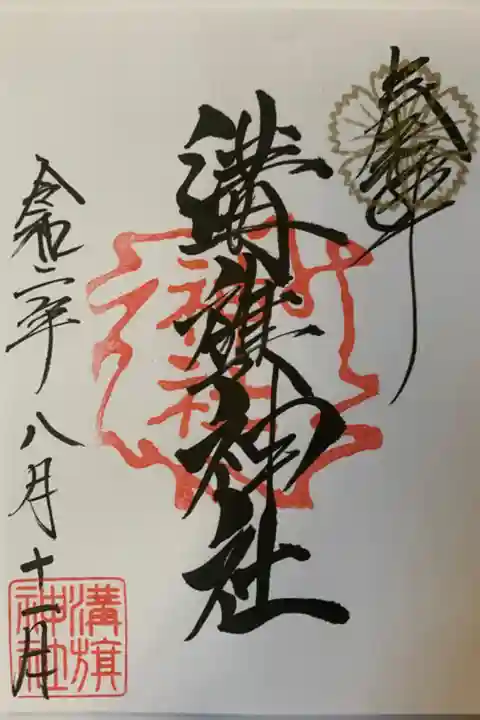 奉拝
溝旗神社
令和二年八月十一日
溝旗神社